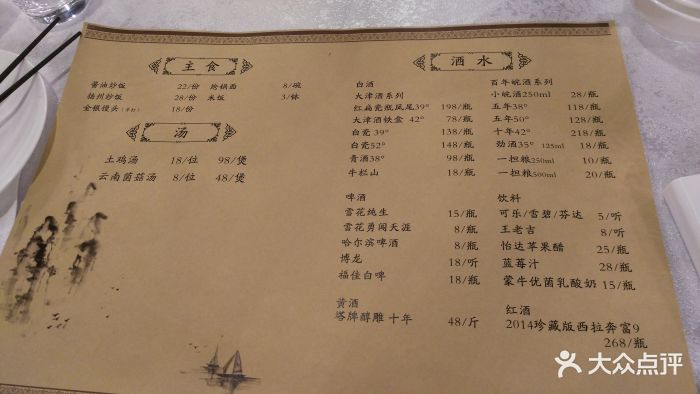 主食
酱油炒饭 22/份 炝锅面 8/碗
扬州炒饭 28/份 米饭 3/钵
金银馒头(半打) 18/份
汤
土鸡汤 18/位 98/煲
云南菌菇汤 8/位 48/煲
酒水
白酒
大津酒系列
红扁瓷瓶凤尾39° 198/瓶
大津酒铁盒 42° 78/瓶
白瓷 39° 138/瓶
白瓷52° 148/瓶
青酒38° 98/瓶
牛栏山 18/瓶
百年皖酒系列
小皖酒250ml 28/瓶
五年38° 118/瓶
五年50° 128/瓶
十年42° 218/瓶
劲酒35° 125ml 18/瓶
一担粮250ml 10/瓶
一担粮500ml 20/瓶
啤酒
雪花纯生 15/瓶
雪花勇闯天涯 8/瓶
哈尔滨啤酒 8/瓶
博龙 18/听
福佳白啤 18/瓶
饮料
可乐/雪碧/芬达 5/听
王老吉 8/听
怡达苹果醋 25/瓶
蓝莓汁 28/瓶
蒙牛优菌乳酸奶 15/瓶
黄酒
塔牌醇雕 十年 48/斤
红酒
2014珍藏版西拉奔富9
268/瓶
大众点评